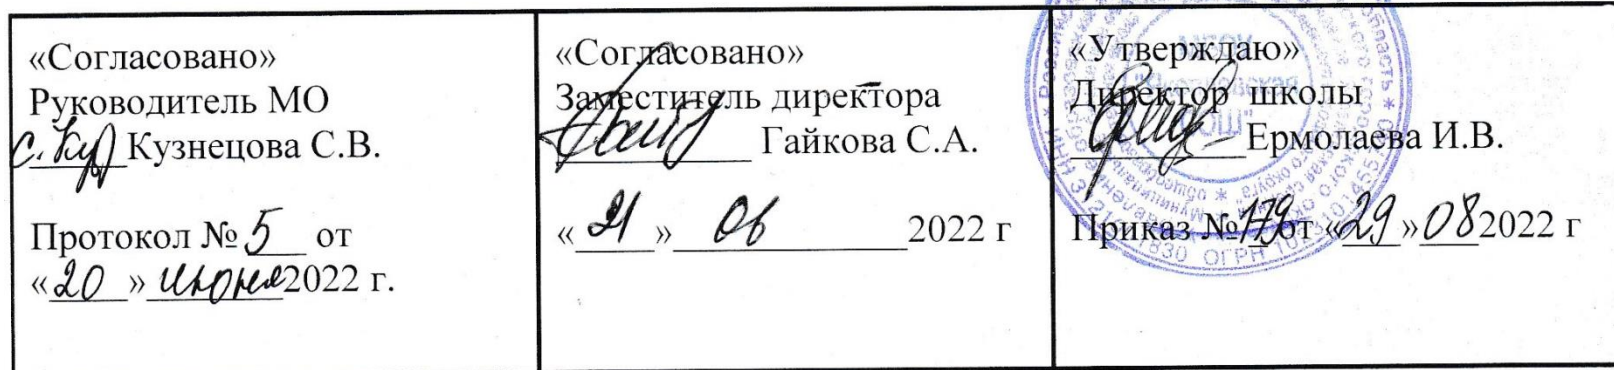 «Согласовано»
Руководитель МО
с. Кузнецова С.В.
Протокол № 5 от
«20» июня 2022 г.
«Согласовано»
Заместитель директора
Гайкова С.А.
«21» 06 2022 г
«Утверждаю»
Директор школы
Ермолаева И.В.
Приказ №179 от «29» 08 2022 г